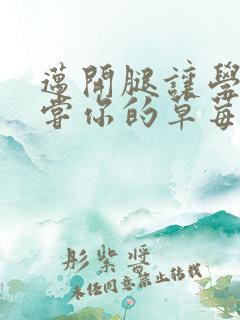 邁開腿讓學
當你的草莓
彤紫醬
未经同意禁止转载